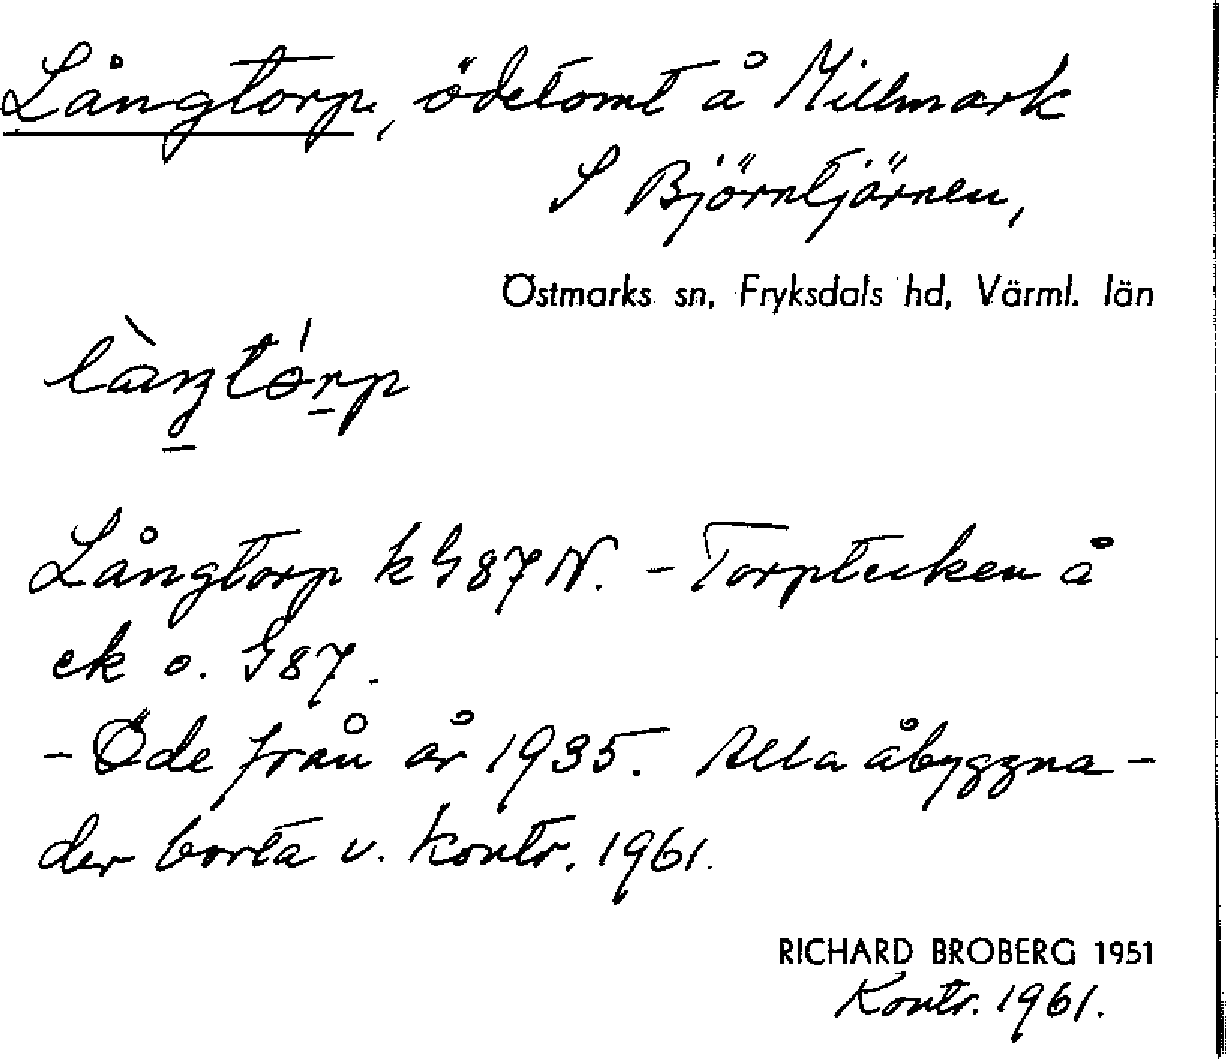 Långtorp, ödetomt å Millmark
S Björntjärnen,
Östmarks sn, Fryksdals hd, Värml. län
Långtorp k G87 N. – Torptecken å
ek o. G87.
– Öde från år 1935. Alla åbyggna-
der borta v. kontr. 1961.
RICHARD BROBERG 1951
Kontr. 1961.